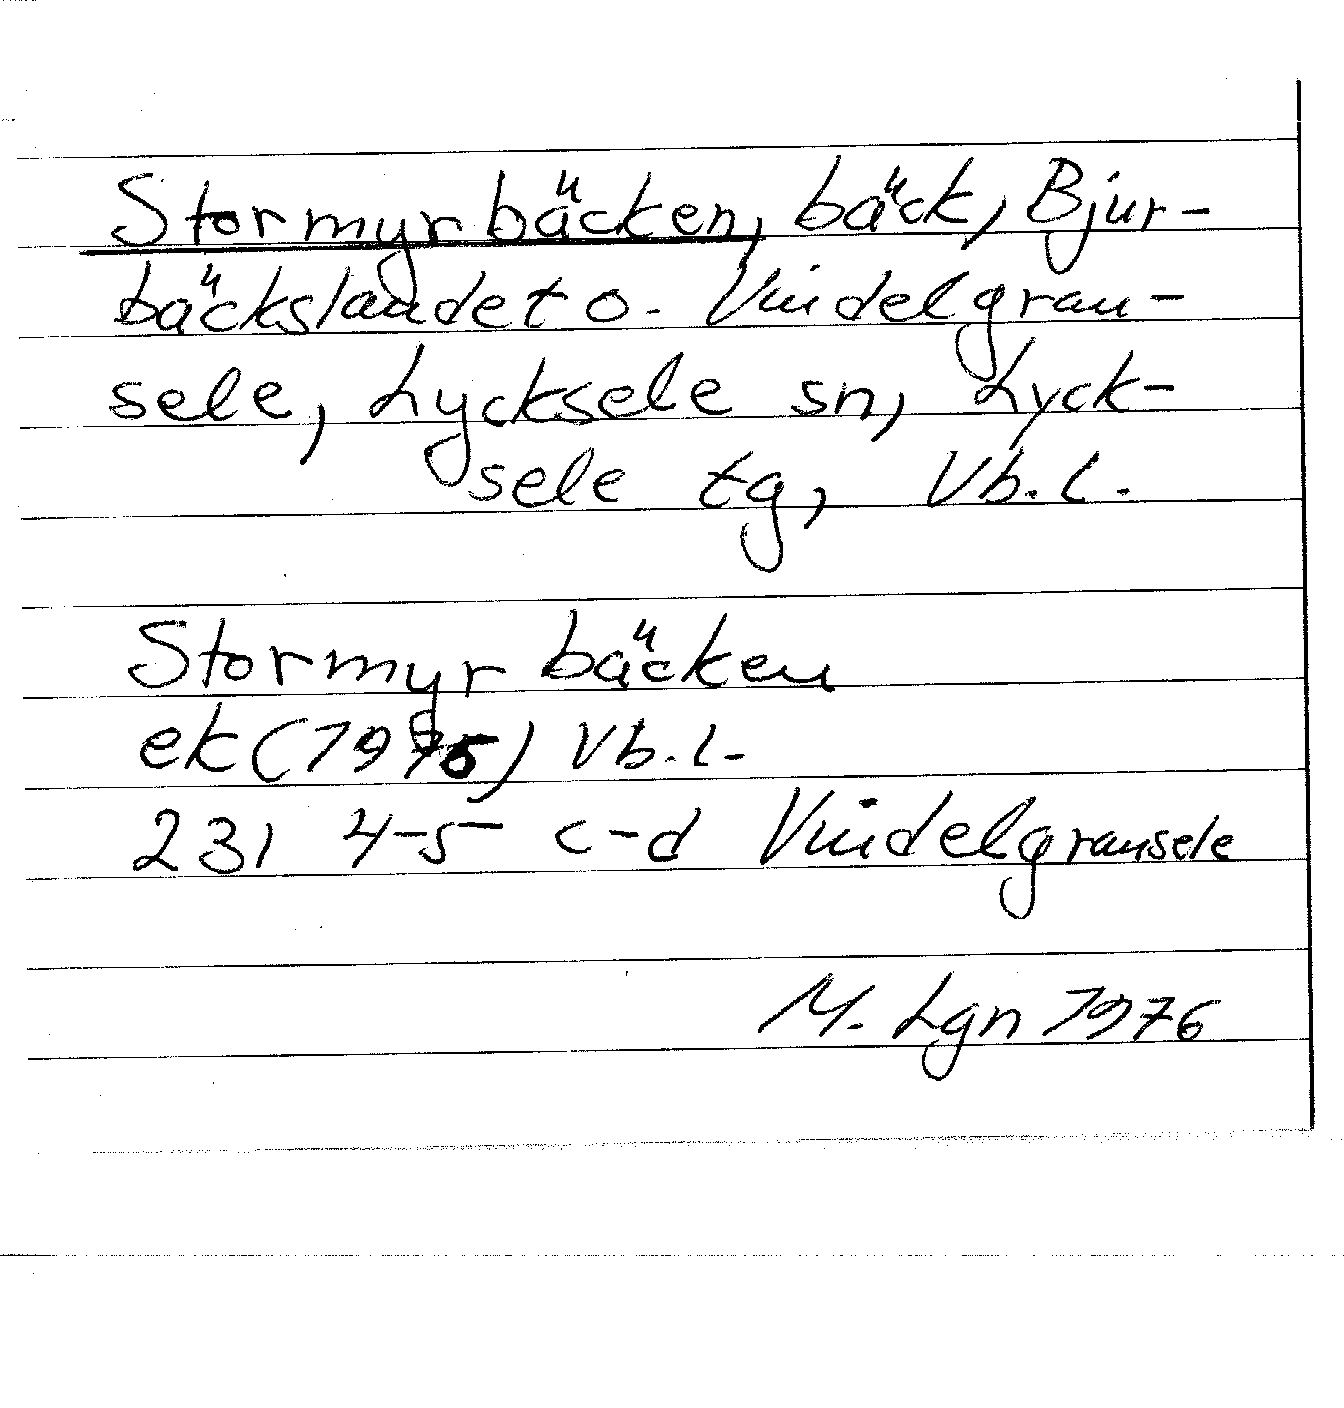 Stormyrbäcken, bäck, Bjur-
bäckslandet o. Vindelgran-
sele, Lycksele sn, Lyck-
sele tg, Vb.l.
Stormyrbäcken
ek (1975) Vb.l.
23I 4-5 c-d Vindelgransele
M. Lgn 1976